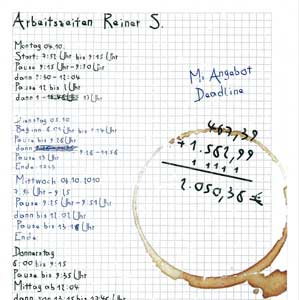 Arbeitszeiten Reiner S.
Montag 04.10.
Start: 7:52 Uhr bis 9:15 Uhr
Pause 9:15 Uhr - 9:30 Uhr
dann 9:30 - 12:04
Pause 12 bis 1 Uhr
dann 1 - 17 Uhr
Mi Angebot
Deadline
Dienstag 05.10
Beginn
Pause bis 9:26 Uhr
dann
Pause 13 Uhr
Ende
467,39
+ 1.582,99
1 1 1 1
2.050,38 €
Mittwoch 06.10.2010
Uhr - 9:25
Pause 9:25 Uhr - 9:51 Uhr
dann bis 12.02 Uhr
Pause bis 13:18 Uhr
Ende:
Donnerstag
8:00 bis 9:15
Pause bis 9:35 Uhr
Mittag ab 12:04
dann von 13:15 bis 17:46 Uhr